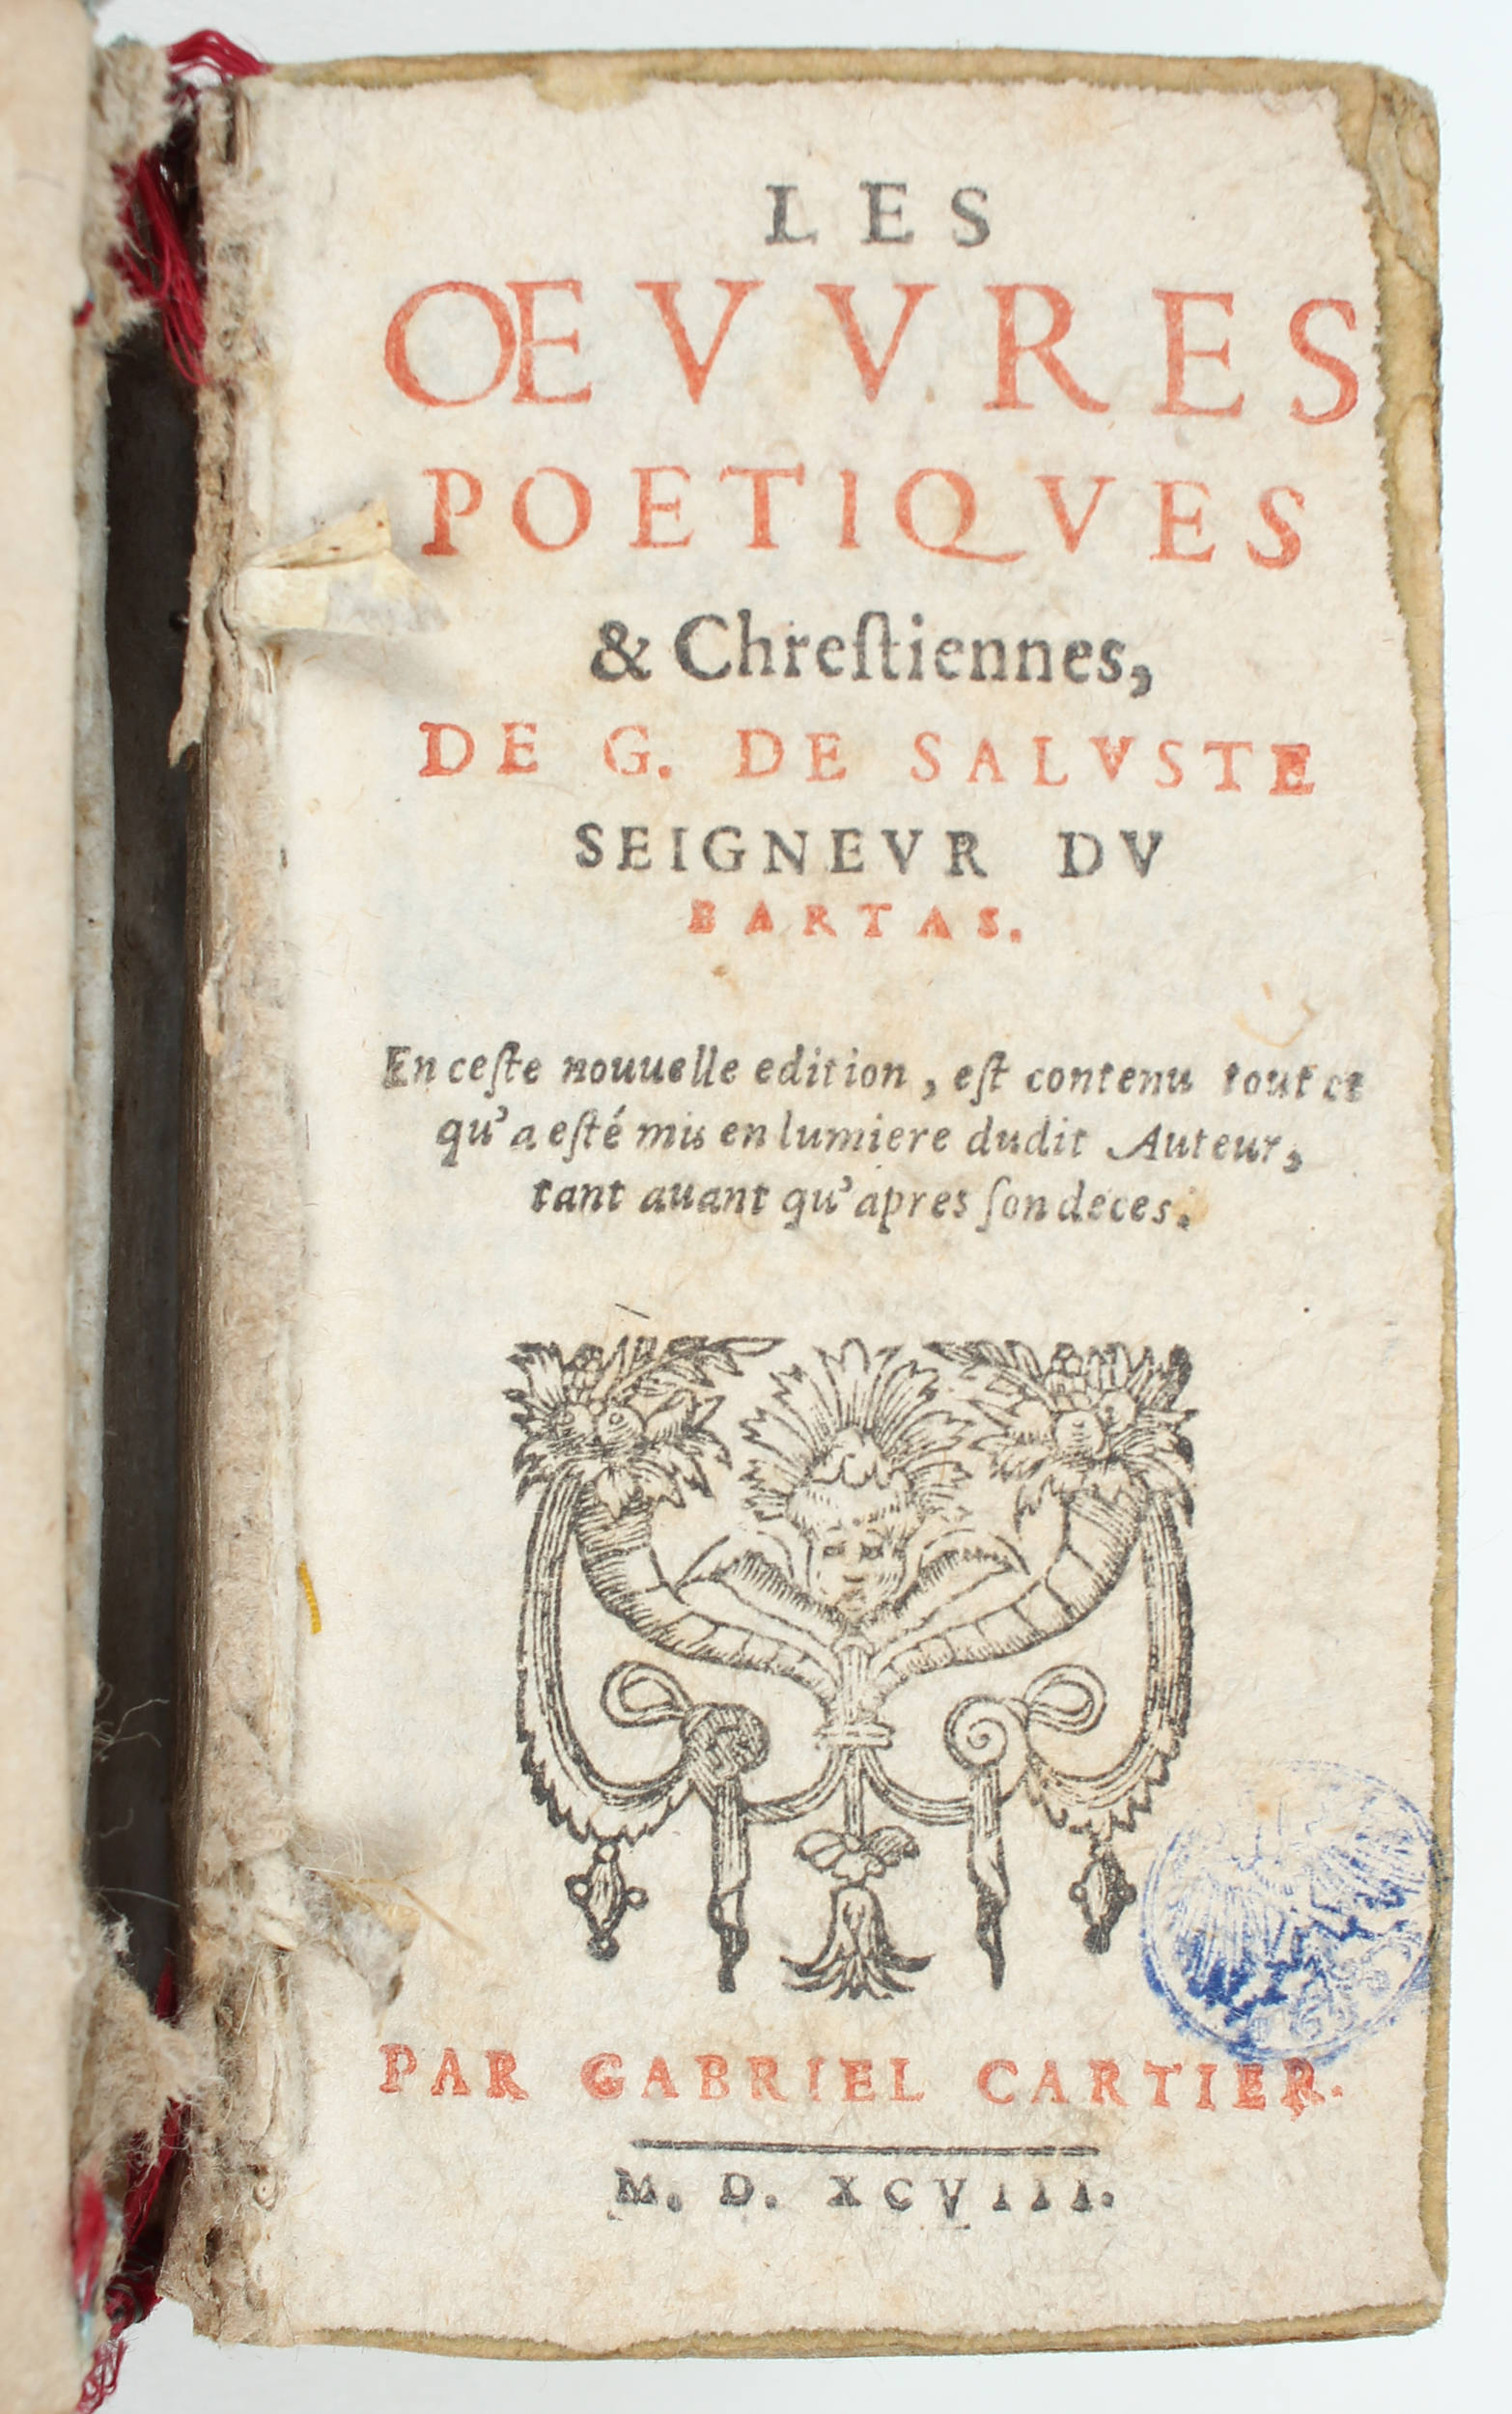 LES
ŒVVRES
POETIQVES
& Chreſtiennes,
DE G. DE SALVSTE
SEIGNEVR DV
BARTAS.
En ceſte nouuelle edition, eſt contenu tout ce
qu'a eſté mis en lumiere dudit Auteur,
tant auant qu'apres ſon deces.
PAR GABRIEL CARTIER.
M. D. XCVIII.